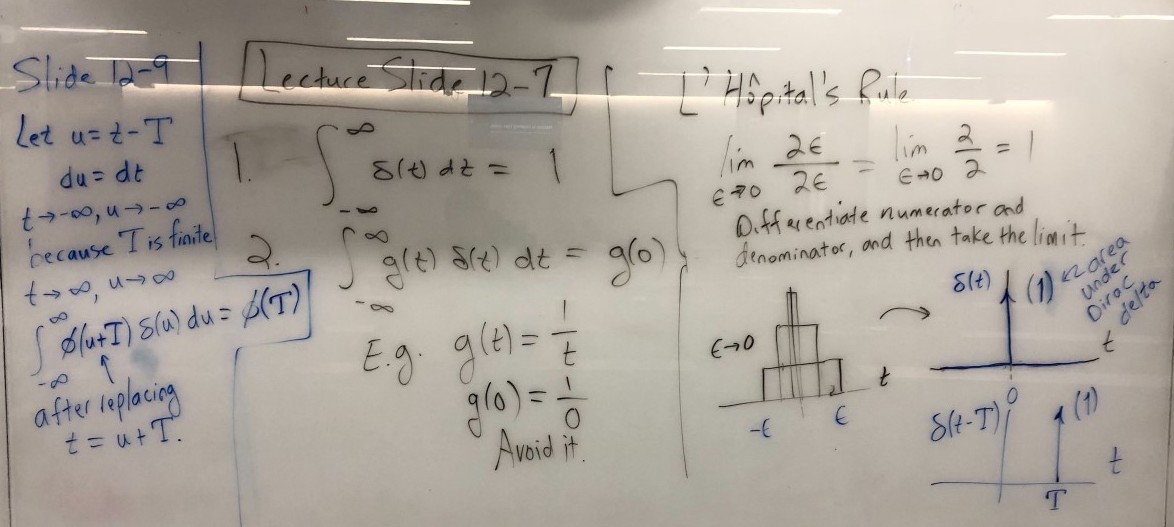 Slide 12-9
Let u = t - T
du = dt
t → -∞, u → -∞
because T is finite
t → ∞, u → ∞
∫_{-∞}^{∞} ϕ(u+T) δ(u) du = ϕ(T)
↑
after replacing
t = u + T.
Lecture Slide 12-7
1. ∫_{-∞}^{∞} δ(t) dt = 1
2. ∫_{-∞}^{∞} g(t) δ(t) dt = g(0)
E.g. g(t) = 1/t
g(0) = 1/0
Avoid it.
L'Hôpital's Rule
lim_{ϵ→0} 2ϵ/2ϵ = lim_{ϵ→0} 2/2 = 1
Differentiate numerator and
denominator, and then take the limit.
ϵ→0
t
-ϵ ϵ
δ(t) (1) ← area
under
Dirac
delta
t
0
δ(t-T) (1)
t
T